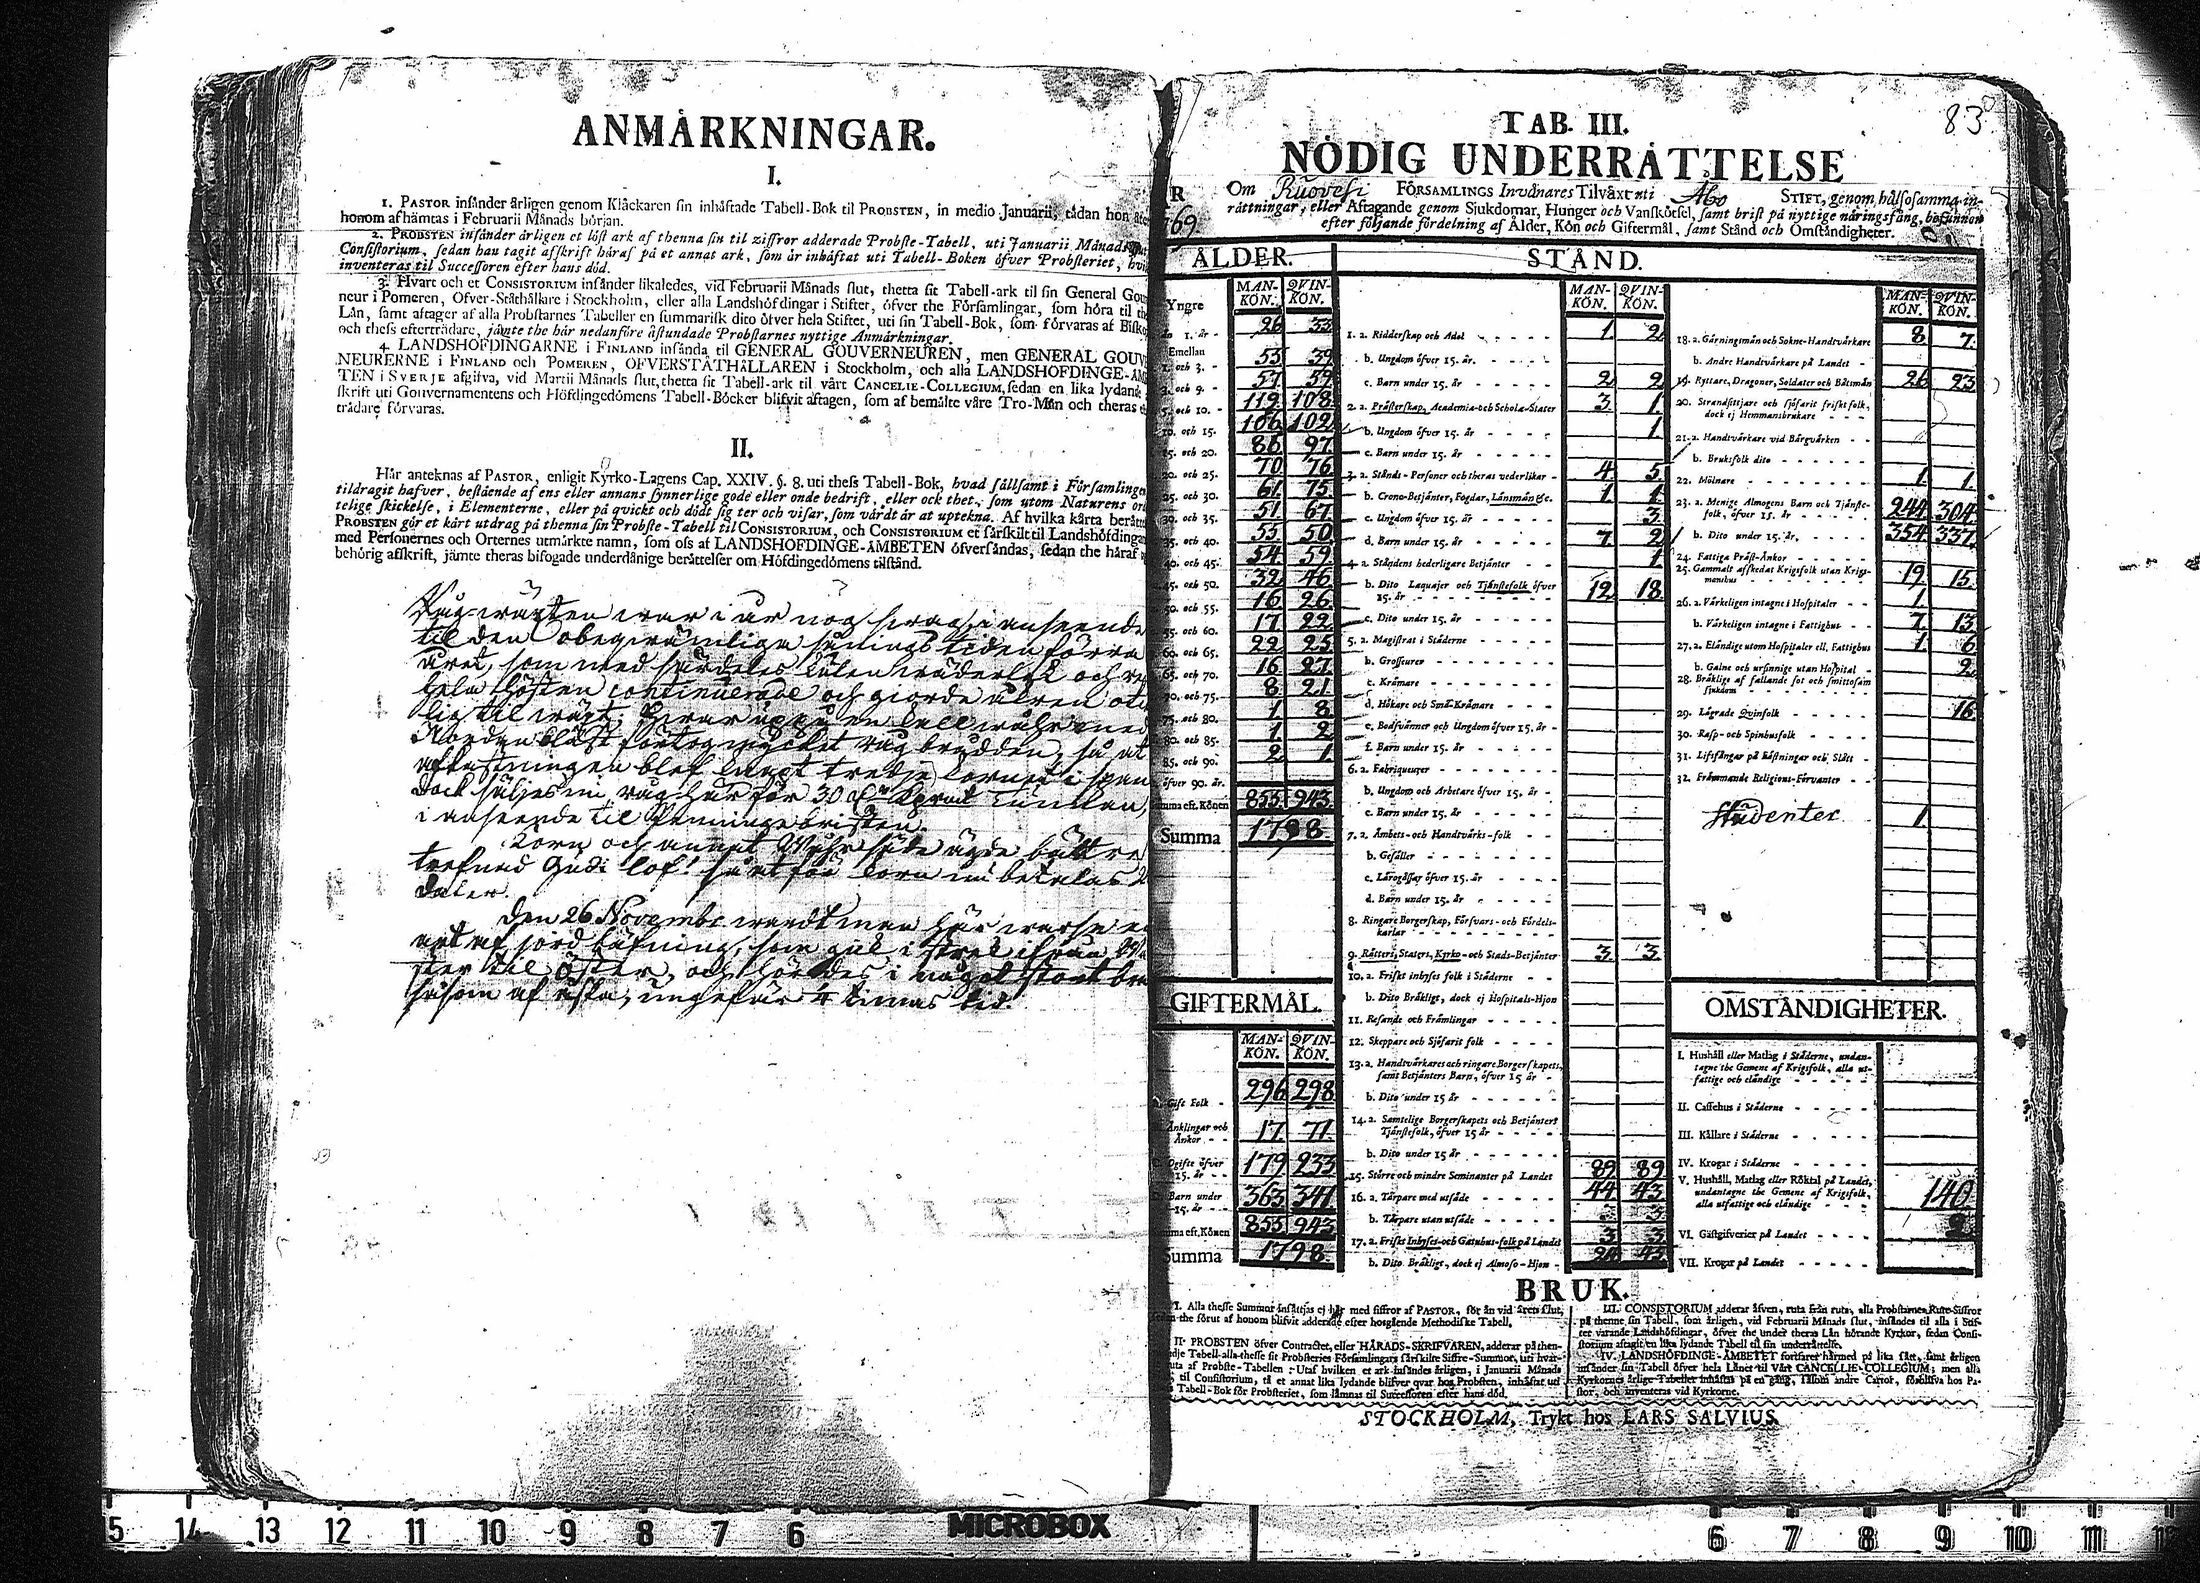 ANMÄRKNINGAR.
I.
1. PASTOR insänder årligen genom Klåckaren sin inhäftade Tabell-Bok til PROBSTEN, in medio Januarii, tädan hon
honom afhämtas i Februarii Månads början.
2. PROBSTEN insänder årligen et löst ark af thenna sin til ziffror adderade Probste-Tabell, uti Januarii Månads
Consistorium, sedan han tagit afskrift häraf på et annat ark, som är inhäftat uti Tabell-Boken öfver Probsteriet,
inventeras til Successoren efter hans död.
3. Hvart och et CONSISTORIUM insänder likaledes, vid Februarii Månads slut, thetta sit Tabell-ark til sin General
neur i Pomeren, Öfver-Ståthållare i Stockholm, eller alla Landshöfdingar i Stifter, öfver the Församlingar, som höra til
Län, samt aftager af alla Probstarnes Tabeller en summarisk dito öfver hela Stiftet, uti sin Tabell-Bok, som förvaras af
och thess efterträdare, jämte the här nedanföre åstundade Probstarnes nyttige Anmärkningar.
4. LANDSHÖFDINGARNE i FINLAND insända til GENERAL GOUVERNEUREN, men GENERAL
NEURERNE i FINLAND och POMEREN, ÖFVERSTÅTHÅLLAREN i Stockholm, och alla LANDSHÖFDINGE-
TEN i SVERJE afgifva, vid Martii Månads slut, thetta sit Tabell-ark til vårt CANCELIE-COLLEGIUM, sedan en lika lydande
skrift uti Gouvernamentens och Höfdingedömens Tabell-Böcker blifvit aftagen, som af bemälte våre Tro-Män och theras
trädare förvaras.
II.
Här anteknas af PASTOR, enligit Kyrko-Lagens Cap. XXIV. §. 8. uti thess Tabell-Bok, hvad sällsamt i Församlingen
tildragit hafver, bestående af ens eller annans synnerlige gode eller onde bedrift, eller ock thet, som utom Naturens
telige skickelse, i Elementerne, eller på qvickt och dödt sig ter och visar, som värdt är at uptekna. Af hvilka kårta
PROBSTEN gör et kårt utdrag på thenna sin Probste-Tabell til CONSISTORIUM, och CONSISTORIUM et särskilt til
med Personernes och Orternes utmärkte namn, som oss af LANDSHÖFDINGE-ÄMBETEN öfversändas, sedan the häraf
behörig afskrift, jämte theras bifogade underdånige berättelser om Höfdingedömens tilstånd.
Råg-wäxten war i år nog swag i anseende
til den obeqwämliga sånings tiden förra
året, som med
hela hösten continuerade och giorde åkren
lig til wäxt.
aftagningen blef knapt tredje kornet i
dock säljes nu råg här för 30 Tunnan,
i anseende til Penninge bristen.
Korn och annat Währ säde ägde bättre
trefnad Gudi lof! så at för korn nu betalas
daler.
Den 26 Novembr wardt man här warse
art af jord bäfning, som gick i
ster til öster, och hördes i något stort
såsom af åska, ungefär 4 timas tid.
83
TAB. III.
NÖDIG UNDERRÄTTELSE
Om Ruovesi FÖRSAMLINGS Invånares Tilväxt uti Åbo STIFT, genom hälsosamma in-
rättningar, eller Aftagande genom Sjukdomar, Hunger och Vanskötsel, samt brist på nyttige näringsfång, befunnen
69 efter följande fördelning af Ålder, Kön och Giftermål, samt Stånd och Omständigheter.
ÅLDER.
MAN-KÖN. QVIN-KÖN.
Yngre
än 1. år - 26 33
Emellan
1. och 3. - 53 39
3. och 9. - 57 59
5. och 10. - 119 108
10. och 15. 106 102
15. och 20. 86 97
20. och 25. 70 76
25. och 30. 61 75
30. och 35. 51 67
35. och 40. 53 50
40. och 45. 54 59
45. och 50. 32 46
50. och 55. 16 26
55. och 60. 17 22
60. och 65. 22 25
65. och 70. 16 27
70. och 75. 8 21
75. och 80. 1 8
80. och 85. 1 2
85. och 90. 2 1
öfver 90. år.
Summa eft. Könen 855 943
Summa 1798
GIFTERMÅL.
MAN-KÖN. QVIN-KÖN.
Gift Folk - 296 298
Änklingar och Änkor - - 17 71
Ogifte öfver 15. år - - 179 233
Barn under 15. år - - 363 341
Summa eft. Könen 855 943
Summa 1798
STÅND.
MAN-KÖN. QVIN-KÖN.
1. a. Ridderskap och Adel 1 2
b. Ungdom öfver 15. år.
c. Barn under 15. år 2 2
2. a. Prästerskap, Academiæ-och Scholæ-Stater 3 1
b. Ungdom öfver 15. år 1
c. Barn under 15. år
3. a. Stånds-Personer och theras vederlikar 4 5
b. Crono-Betjänter, Fogdar, Länsmän &c. 1 1
c. Ungdom öfver 15. år 3
d. Barn under 15. år 7 2
4. a. Ståndens hederligare Betjänter 1
b. Dito Laquajer och Tjänstefolk öfver 15. år 12 18
c. Dito under 15. år
5. a. Magistrat i Städerne
b. Grosseurer
c. Krämare
d. Hökare och Små-Krämare
e. Bodsvänner och Ungdom öfver 15. år
f. Barn under 15. år
6. a. Fabriqueurer
b. Ungdom och Arbetare öfver 15. år
c. Barn under 15. år
7. a. Ämbets-och Handtvärks-folk
b. Gesäller
c. Lärogåssar öfver 15. år
d. Barn under 15. år
8. Ringare Borgerskap, Försvars-och Fördelskarlar
9. Rätters, Staters, Kyrko-och Stads-Betjänter 3 3
10. a. Friskt inhyses folk i Städerne
b. Dito Bräkligt, dock ej Hospitals-Hjon
11. Resande och Främlingar
12. Skeppare och Sjöfarit folk
13. a. Handtvärkares och ringare Borgerskapets, samt Betjänters Barn, öfver 15 år
b. Dito under 15 år
14. a. Samtelige Borgerskapets och Betjänters Tjänstefolk, öfver 15 år
b. Dito under 15 år
15. Större och mindre Seminanter på Landet 89 89
16. a. Tårpare med utsäde 44 43
b. Tårpare utan utsäde 3
17. a. Friskt Inhyses-och Gatuhus-folk på Landet 3 3
b. Dito Bräkligt, dock ej Almoso-Hjon 45
MAN-KÖN. QVIN-KÖN.
18. a. Gärningsmän och Sokne-Handtvärkare 8 7
b. Andre Handtvärkare på Landet
19. Ryttare, Dragoner, Soldater och Båtsmän 26 23
20. Strandsittjare och sjöfarit friskt folk, dock ej Hemmansbrukare
21. a. Handtvärkare vid Bärgvärken
b. Bruksfolk dito
22. Mölnare 1 1
23. a. Menige Almogens Barn och Tjänste-folk, öfver 15. år 244 304
b. Dito under 15. år. 354 337
24. Fattiga Präst-Änkor
25. Gammalt afskedat Krigsfolk utan Krigsmanshus 19 15
26. a. Värkeligen intagne i Hospitaler 1
b. Värkeligen intagne i Fattighus 7 13
27. a. Eländige utom Hospitaler ell. Fattighus 1 6
b. Galne och ursinnige utan Hospital 2
28. Bräklige af fallande sot och smittosam sjukdom
29. Lägrade Qvinfolk 16
30. Rasp- och Spinhusfolk
31. Lifsfångar på Fästningar och Slått
32. Främmande Religions-Förvanter
Studenter 1
OMSTÄNDIGHETER.
I. Hushåll eller Matlag i Städerne, undantagne the Gemene af Krigsfolk, alla utfattige och eländige
II. Caffehus i Städerne
III. Källare i Städerne
IV. Krogar i Städerne
V. Hushåll, Matlag eller Röktal på Landet, undantagne the Gemene af Krigsfolk, alla utfattige och eländige 140
VI. Gästgifverier på Landet 2
VII. Krogar på Landet
BRUK.
I. Alla thesse Summor insättjas ej här med siffror af PASTOR, för än vid årets slut,
sedan the förut af honom blifvit adderade efter hosgående Methodiske Tabell.
II. PROBSTEN öfver Contractet, eller HÄRADS-SKRIFVAREN, adderar på then-
Tabell alla thesse sit Probsteries Församlingars särskilte Siffre-Summor, uti hvar-
af Probste-Tabellen: Utaf hvilken et ark insändes årligen, i Januarii Månads
til Consistorium, tå et annat lika lydande blifver qvar hos Probsten, inhäftat uti
Tabell-Bok för Probsteriet, som lämnas til Successoren efter hans död.
III. CONSISTORIUM adderar äfven, ruta från ruta, alla Probstarnes Rute-Siffror
på thenne sin Tabell, som årligen, vid Februarii Månads slut, insändes til alla i Stif-
tet varande Landshöfdingar, öfver the under theras Län hörande Kyrkor, sedan Consi-
storium aftagit en lika lydande Tabell til sin underrättelse.
IV. LANDSHÖFDINGE-ÄMBETET fortfaret härmed på lika sätt, samt årligen
insänder sin Tabell öfver hela Länet til Vårt CANCELLIE-COLLEGIUM; men alla
Kyrkornes årlige Tabeller inhäftas på en gång, såsom andre Cartor, förblifva hos Pa-
stor, och inventeras vid Kyrkorne.
STOCKHOLM, Trykt hos LARS SALVIUS.
15 14 13 12 11 10 9 8 7 6 MICROBOX 6 7 8 9 10 11 12